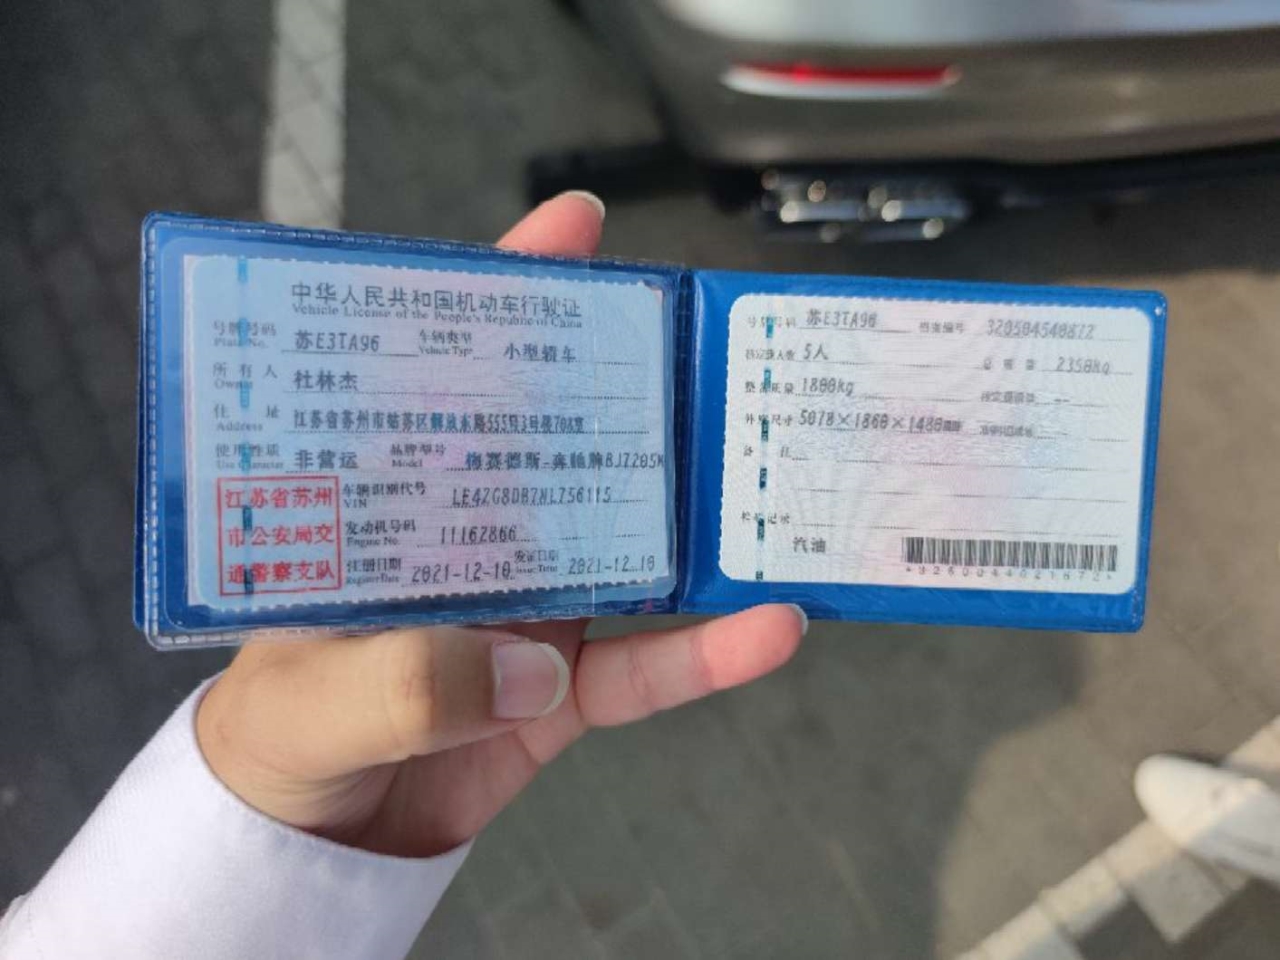 中华人民共和国机动车行驶证
Vehicle License of the People's Republic of China
号牌号码 苏E3TA96 车辆类型 小型轿车
Plate No. Vehicle Type
所有人 杜林杰
Owner
住址 江苏省苏州市姑苏区解放东路555号3号楼708室
Address
使用性质 非营运 品牌型号 梅赛德斯-奔驰牌BJ7205
Use Character Model
江苏省苏州
市公安局交
通警察支队
车辆识别代号 LE4ZG8DB7ML756115
VIN
发动机号码 11162866
Engine No.
注册日期 2021-12-10 发证日期 2021-12-10
Register Date Issue Date
号牌号码 苏E3TA96 档案编号 320504540872
核定载人数 5人 总质量 2350kg
整备质量 1800kg
外廓尺寸 5078×1860×1480mm
备注
检验记录
汽油